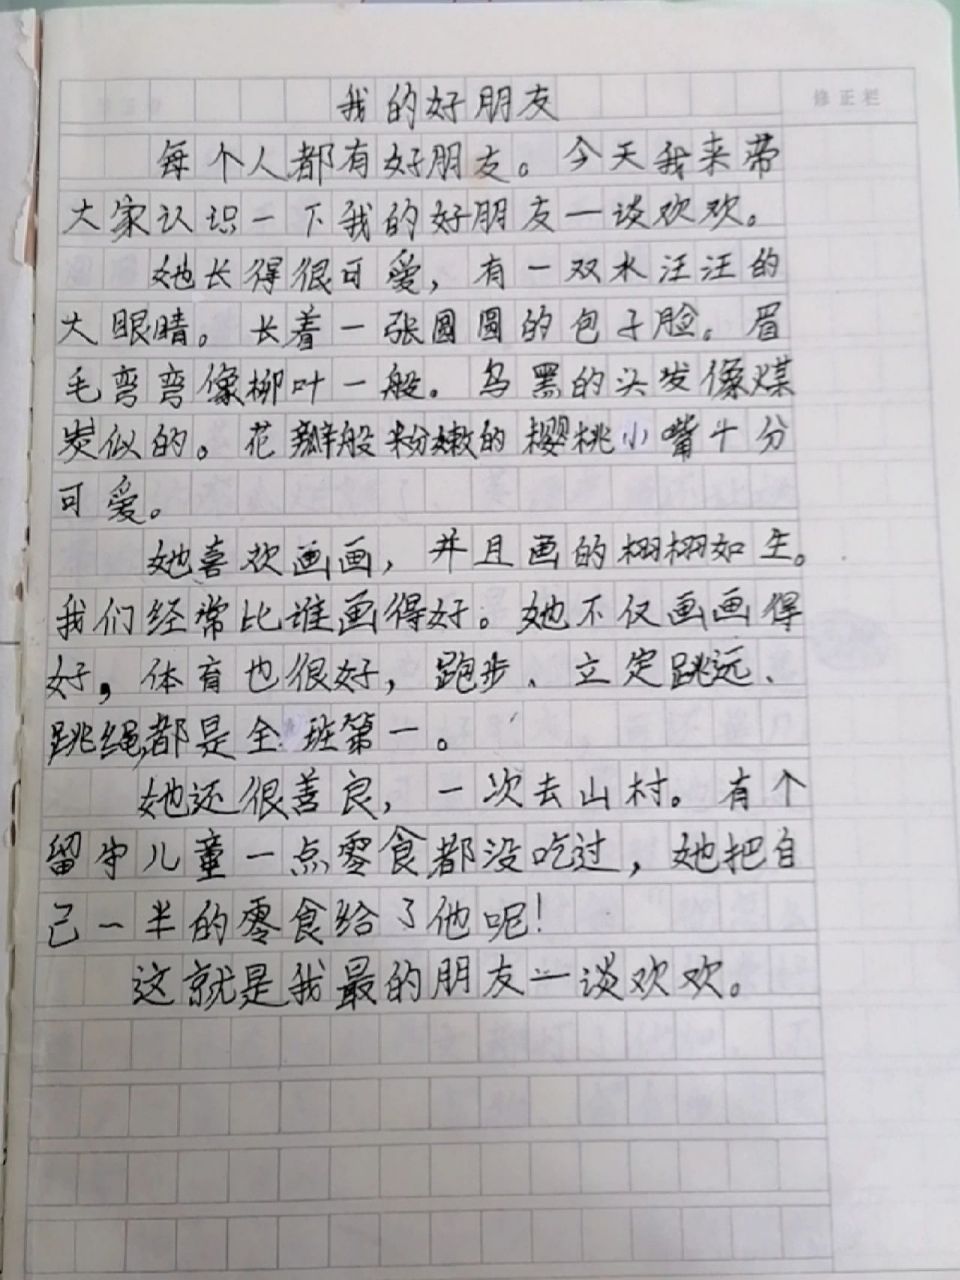 我的好朋友
修正栏
每个人都有好朋友。今天我来带
大家认识一下我的好朋友一谈欢欢。
她长得很可爱，有一双水汪汪的
大眼睛。长着一张圆圆的包子脸。眉
毛弯弯像柳叶一般。乌黑的头发像煤
炭似的。花瓣般粉嫩的樱桃小嘴十分
可爱。
她喜欢画画，并且画的栩栩如生。
我们经常比谁画得好。她不仅画画得
好，体育也很好，跑步、立定跳远、
跳绳，都是全班第一。
她还很善良，一次去山村。有个
留守儿童一点零食都没吃过，她把自
己一半的零食给了他呢！
这就是我最的朋友一谈欢欢。